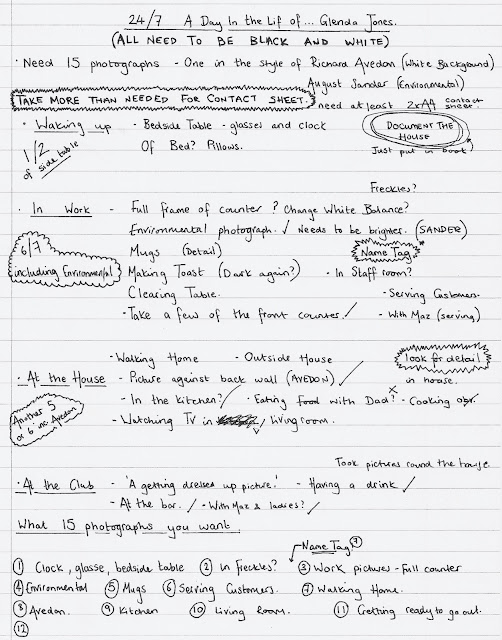 24/7 A Day In the Life of... Glenda Jones.
(ALL NEED TO BE BLACK AND WHITE)
· Need 15 photographs - One in the style of Richard Avedon (White Background)
August Sander (Environmental)
TAKE MORE THAN NEEDED FOR CONTACT SHEET.
need at least 2xA4 contact sheet.
· Waking up - Bedside Table - glasses and clock
Of Bed? Pillows.
1/2 of side table
DOCUMENT THE HOUSE
Just put in book
Freckles?
· In Work - Full frame of counter? Change White Balance?
Environmental photograph. ✓ Needs to be brighter. (SANDER)
6/7 including Environmental
Mugs (Detail)
Name Tag
Making Toast (Dark again?) - In Staff room?
Clearing Table.
- Serving Customers.
- Take a few of the front counter. ✓
- With Maz (serving)
- Walking Home - Outside House
look for detail in house.
· At the House - Picture against back wall (AVEDON) ✓
- In the kitchen? ✓ - Eating food with Dad? x - Cooking
Another 5 or 6 inc Avedon
- Watching Tv in living room. ✓
Took pictures round the house.
· At the Club - 'A getting dresses up picture.' - Having a drink ✓
- At the bar. ✓ - With Maz & ladies? ✓
What 15 photographs you want.
Name Tag ?
① Clock, glasse, bedside table ② In Freckles? ③ Work pictures - Full counter
④ Environmental ⑤ Mugs ⑥ Serving Customers. ⑦ Walking Home.
⑧ Avedon. ⑨ Kitchen ⑩ Living Room. ⑪ Getting ready to go out.
⑫